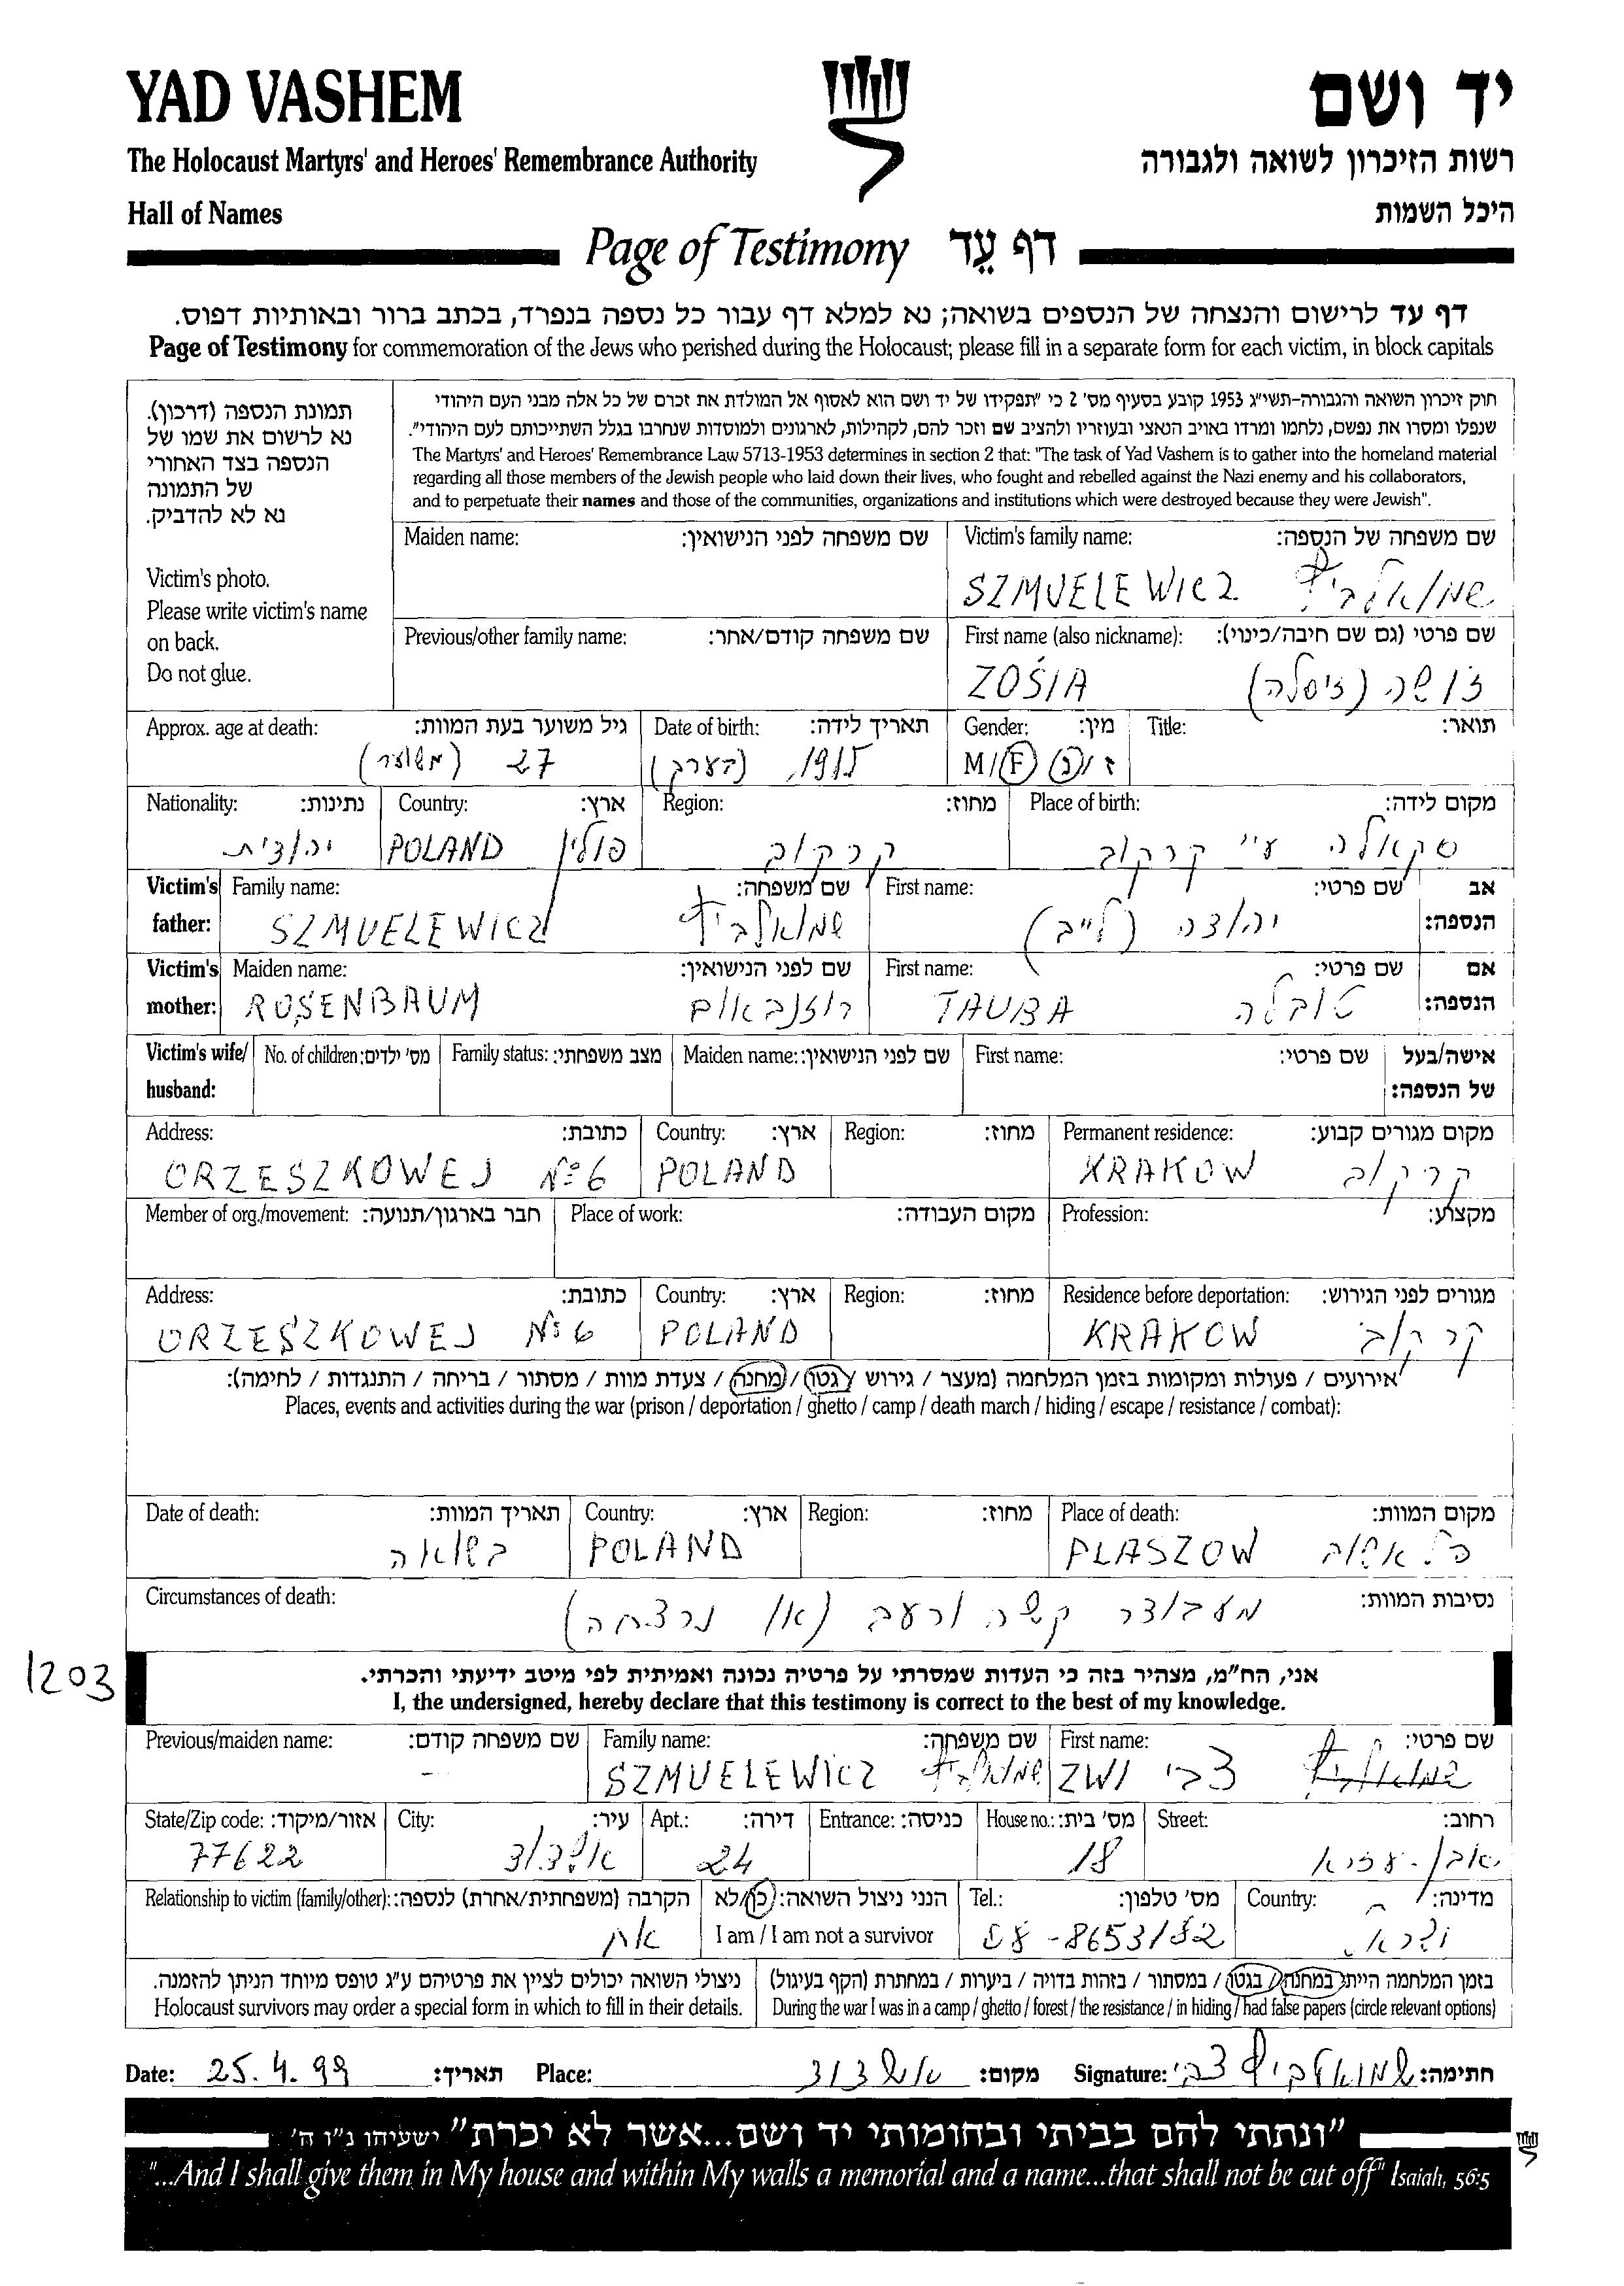 YAD VASHEM
יד ושם
The Holocaust Martyrs' and Heroes' Remembrance Authority
רשות הזיכרון לשואה ולגבורה
Hall of Names
היכל השמות
Page of Testimony דף עֵד
דף עד לרישום והנצחה של הנספים בשואה; נא למלא דף עבור כל נספה בנפרד, בכתב ברור ובאותיות דפוס.
Page of Testimony for commemoration of the Jews who perished during the Holocaust; please fill in a separate form for each victim, in block capitals
תמונת הנספה (דרכון).
נא לרשום את שמו של
הנספה בצד האחורי
של התמונה
נא לא להדביק.
Victim's photo.
Please write victim's name
on back.
Do not glue.
חוק זיכרון השואה והגבורה-תשי"ג 1953 קובע בסעיף מס' 2 כי "תפקידו של יד ושם הוא לאסוף אל המולדת את זכרם של כל אלה מבני העם היהודי
שנפלו ומסרו את נפשם, נלחמו ומרדו באויב הנאצי ובעוזריו ולהציב שם וזכר להם, לקהילות, לארגונים ולמוסדות שנחרבו בגלל השתייכותם לעם היהודי".
The Martyrs' and Heroes' Remembrance Law 5713-1953 determines in section 2 that: "The task of Yad Vashem is to gather into the homeland material
regarding all those members of the Jewish people who laid down their lives, who fought and rebelled against the Nazi enemy and his collaborators,
and to perpetuate their names and those of the communities, organizations and institutions which were destroyed because they were Jewish".
Maiden name: שם משפחה לפני הנישואין:
Victim's family name: שם משפחה של הנספה:
SZMUELEWICZ שמואלביץ
Previous/other family name: שם משפחה קודם/אחר:
First name (also nickname): שם פרטי (גם שם חיבה/כינוי):
ZOŚIA זושה (זיסלה)
Approx. age at death: גיל משוער בעת המוות:
27 (משוער)
Date of birth: תאריך לידה:
1915 (בערך)
Gender: מין:
M/F ז/נ
Title: תואר:
Nationality: נתינות:
יהודית
Country: ארץ:
POLAND פולין
Region: מחוז:
קרקוב
Place of birth: מקום לידה:
סקאלה ע"י קרקוב
Victim's father: Family name: שם משפחה:
SZMUELEWICZ שמואלביץ
First name: שם פרטי:
יהודה (לייב)
אב הנספה:
Victim's mother: Maiden name: שם לפני הנישואין:
ROSENBAUM רוזנבאום
First name: שם פרטי:
TAUBA טובלה
אם הנספה:
Victim's wife/ husband:
No. of children: מס' ילדים:
Family status: מצב משפחתי:
Maiden name: שם לפני הנישואין:
First name: שם פרטי:
אישה/בעל של הנספה:
Address: כתובת:
ORZESZKOWEJ No 6
Country: ארץ:
POLAND
Region: מחוז:
Permanent residence: מקום מגורים קבוע:
KRAKOW קרקוב
Member of org./movement: חבר בארגון/תנועה:
Place of work: מקום העבודה:
Profession: מקצוע:
Address: כתובת:
ORZESZKOWEJ No 6
Country: ארץ:
POLAND
Region: מחוז:
Residence before deportation: מגורים לפני הגירוש:
KRAKOW קרקוב
אירועים / פעולות ומקומות בזמן המלחמה (מעצר / גירוש / גטו / מחנה / צעדת מוות / מסתור / בריחה / התנגדות / לחימה):
Places, events and activities during the war (prison / deportation / ghetto / camp / death march / hiding / escape / resistance / combat):
Date of death: תאריך המוות:
בשואה
Country: ארץ:
POLAND
Region: מחוז:
Place of death: מקום המוות:
PLASZOW פלאשוב
Circumstances of death: נסיבות המוות:
מעבודה קשה ורעב (או נרצחה)
1203
אני, הח"מ, מצהיר בזה כי העדות שמסרתי על פרטיה נכונה ואמיתית לפי מיטב ידיעתי והכרתי.
I, the undersigned, hereby declare that this testimony is correct to the best of my knowledge.
Previous/maiden name: שם משפחה קודם:
-
Family name: שם משפחה:
SZMUELEWICZ שמואלביץ
First name: שם פרטי:
ZWI צבי שמואלביץ
State/Zip code: אזור/מיקוד:
77622
City: עיר:
אשדוד
Apt.: דירה:
24
Entrance: כניסה:
House no.: מס' בית:
18
Street: רחוב:
אבן-עזרא
Relationship to victim (family/other): הקרבה (משפחתית/אחרת) לנספה:
אח
הנני ניצול השואה: כן/לא
I am / I am not a survivor
Tel.: מס' טלפון:
08-8653182
Country: מדינה:
ישראל
ניצולי השואה יכולים לציין את פרטיהם ע"ג טופס מיוחד הניתן להזמנה.
Holocaust survivors may order a special form in which to fill in their details.
בזמן המלחמה הייתי במחנה / בגטו / במסתור / בזהות בדויה / ביערות / במחתרת (הקף בעיגול)
During the war I was in a camp / ghetto / forest / the resistance / in hiding / had false papers (circle relevant options)
Date: 25.4.99 תאריך: Place: אשדוד מקום: Signature: שמואלביץ צבי חתימה:
"ונתתי להם בביתי ובחומותי יד ושם...אשר לא יכרת" ישעיהו נ"ו ה'
"...And I shall give them in My house and within My walls a memorial and a name...that shall not be cut off" Isaiah, 56:5